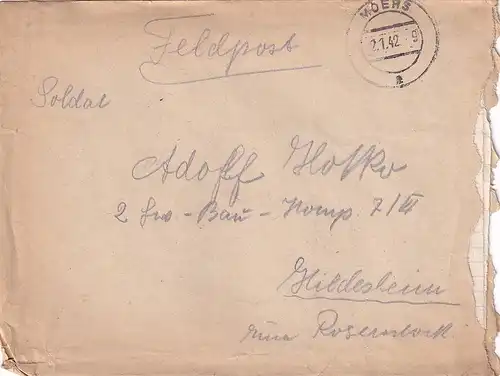 Feldpost
MOERS
2.1.42
a
Soldat
Adolf Hotko
2 Ers - Bau - Komp. 7/VI
Hildesheim
zum Rosenstock